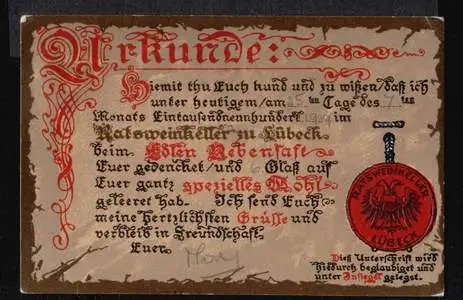 Urkunde:
Hiemit thu Euch kund und zu wißen/daß ich
unter heutigem/am 25 ten Tage des 7 ten
Monats Eintausendneunhundert im
Ratsweinkeller zu Lübeck
beim Edlen Rebensaft
Euer gedencket/und Glaß auf
Euer gantz spezielles Wohl
geleeret hab. Ich send Euch
meine hertzlichsten Grüße und
verbleib in Freundschaft
Euer
RATSWEINKELLER
LÜBECK
Dieß Unterschrift wird
hiedurch beglaubiget und
unter Insiegel geleget.